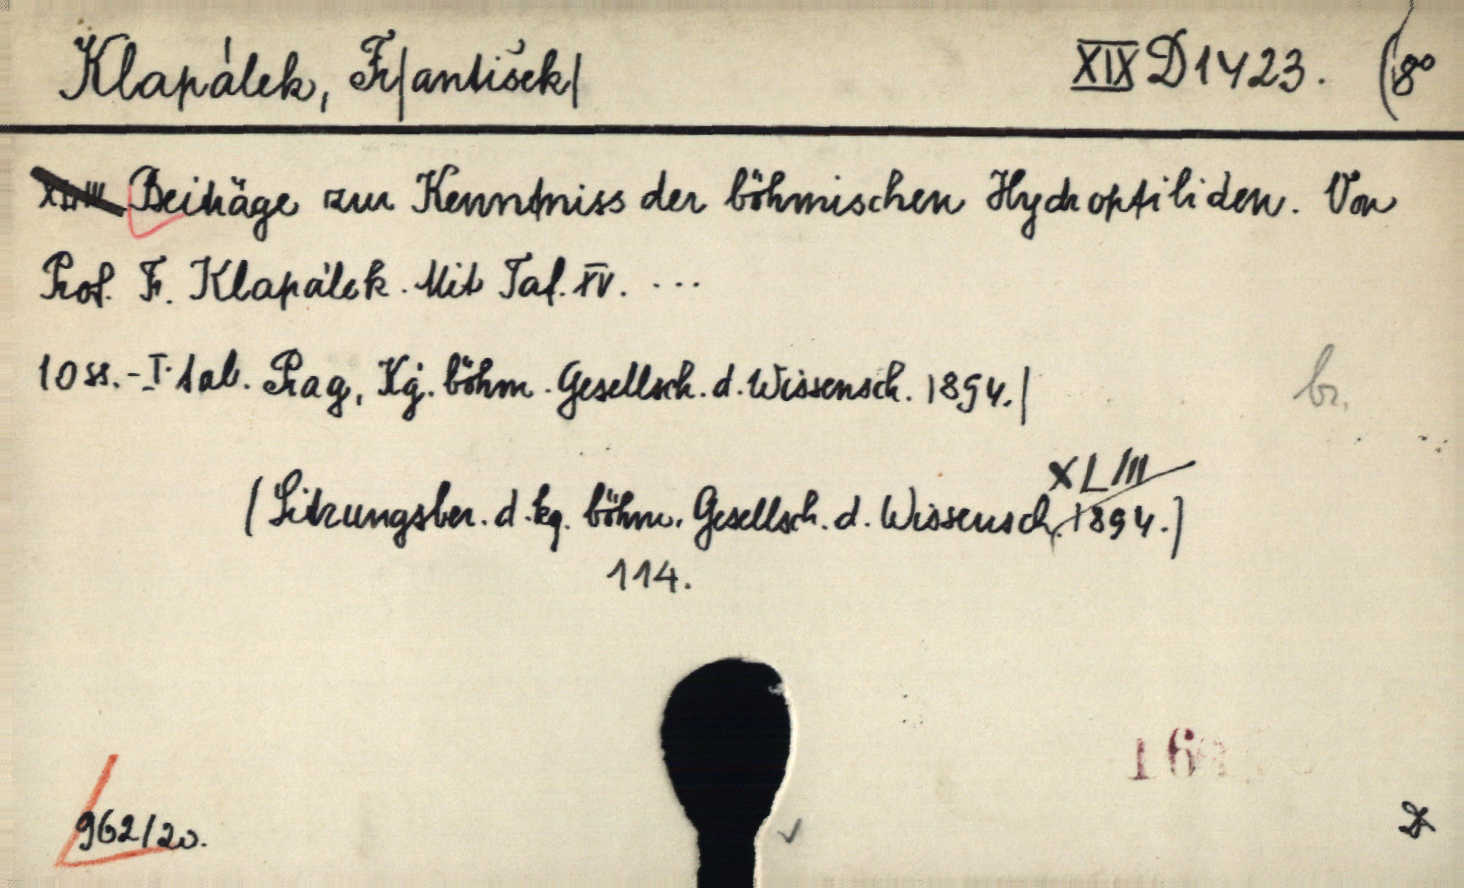 Klapálek, Fr|antišek| XIX D 1423. (8°
XLIII Beiträge zur Kenntniss der böhmischen Hydroptiliden. Von
Prof. Fr. Klapálek. Mit Taf. XV. ...
10 ss. - I. tab. Prag, Kg. böhm. Gesellsch. d. Wissensch. 1894.|
br.
XLIII
(Sitzungsber. d. kg. böhm. Gesellsch. d. Wissensch. 1894.)
114.
962/20.